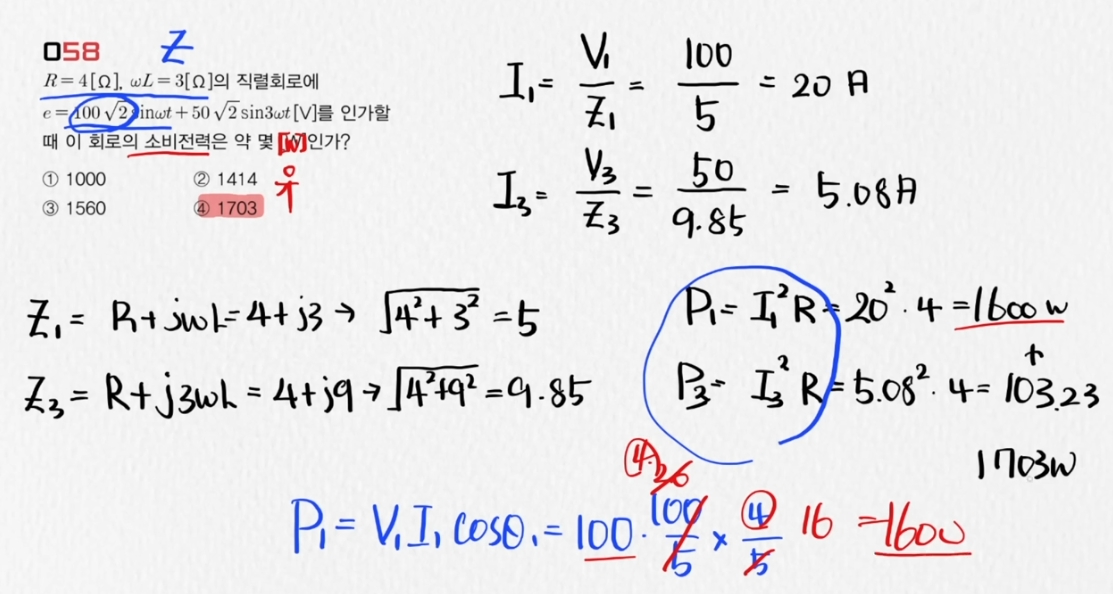 058 Z
R=4[Ω], ωL=3[Ω]의 직렬회로에
e=100√2 sinωt+50√2 sin3ωt[V]를 인가할
때 이 회로의 소비전력은 약 몇 [W]인가?
① 1000 ② 1414
③ 1560 ④ 1703
I₁= V₁/Z₁ = 100/5 = 20 A
I₃= V₃/Z₃ = 50/9.85 = 5.08A
Z₁= R+jωL=4+j3 → √4²+3² =5
Z₃= R+j3ωL=4+j9→√4²+9²=9.85
P₁= I₁²R=20²·4=1600W
+
P₃= I₃²R=5.08²·4=103.23
1703W
P₁=V₁I₁cosθ₁=100·100/5×4/5 16 =1600